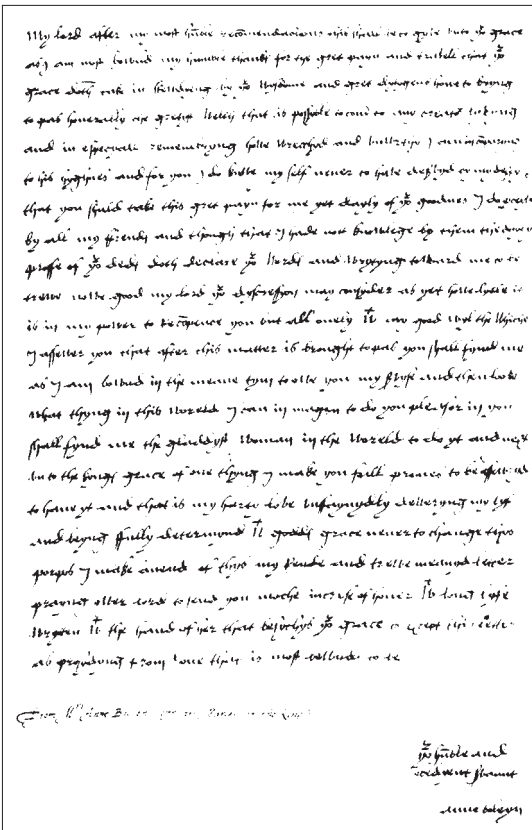 My lord after my most humble recomendacions this shall be to gyve unto yor grace
as I am most bownd my humble thanks for the gret payn and travell that yor
grace doth take in stewdyeng by yor wysdome and gret dylygens howe to bryng
to pas honerably the gretyst welth that is possyble to com to any creator lyvyng
and in especyall remembryng howe wretched and unworthy I am in comparyng
to his hyghnes and for you I do knowe my self never to have deservyd by my deserts
that you shuld take this gret payn for me yet dayly of yor goodnes I do perceive
by all my ffrends and though that I hade not knowlege by them the dayly
proffe of yor deds doth declare yor words and wrytyng toward me to be
trewe nowe good my lord yor dyscressyon may consyder as yet howe lytle it
is in my power to recompence you but all onely wt my good wyl the whiche
I assewer you that after this matter is brought to pas you shall fynd me
as I am bownd in the meane tym to owe you my servyse and then looke
what thyng in this woreld I can inmagen to do you pleasor in you
shall fynd me the gladdyst woman in the woreld to do yt and next
unto the kyngs grace of one thyng I make you full promes to be assewryd
to have yt and that is my harty love unfaynydly dewering my lyf
and beyng fully determynd wt godds grace never to change thys
porpos I make an end of thys my reude and trewe meanyd letter
prayng ower lord to send you moche increse of honer wt long lyfe
wrytten wt the hand of her that besychys yor grace to except this letter
as prosydyng from one that is most bownde to be
yor humble and
obedient servant
anne boleyn